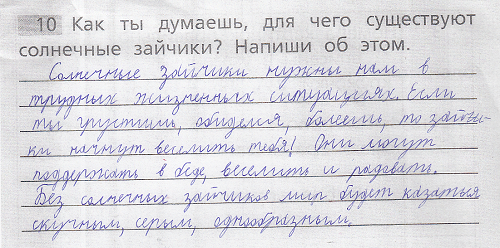 10 Как ты думаешь, для чего существуют
солнечные зайчики? Напиши об этом.
Солнечные зайчики нужны нам в
трудных жизненных ситуациях. Если
ты грустишь, обиделся, болеешь, то зайчи-
ки начнут веселить тебя! Они могут
поддержать в беде, веселить и радовать.
Без солнечных зайчиков мир будет казаться
скучным, серым, однообразным.